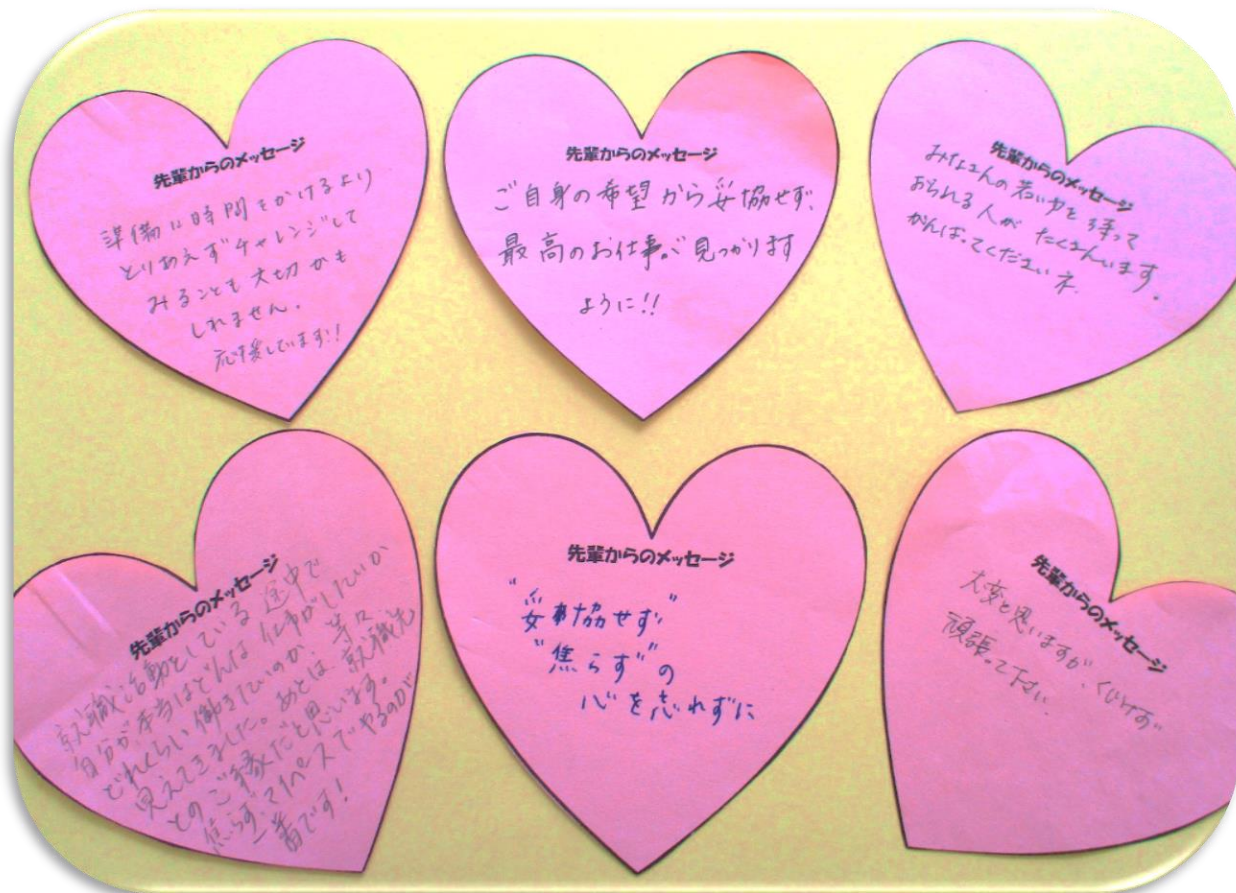 先輩からのメッセージ
準備に時間をかけるより
とりあえずチャレンジして
みることも大切かも
しれません。
応援しています!!
先輩からのメッセージ
ご自身の希望から妥協せず、
最高のお仕事が見つかります
ように!!
先輩からのメッセージ
みなさんの若い力を待って
おられる人がたくさんいます。
がんばってくださいネ
先輩からのメッセージ
就職活動をしている途中で
自分が本当はどんな仕事がしたいか
どれくらい働きたいのか、等々
見えてきました。あとは、就職先
とのご縁だと思います。
焦らずマイペースでやるのが
一番です!
先輩からのメッセージ
"妥協せず"
"焦らず"の
心を忘れずに
先輩からのメッセージ
大変と思いますが、くじけず
頑張って下さい。